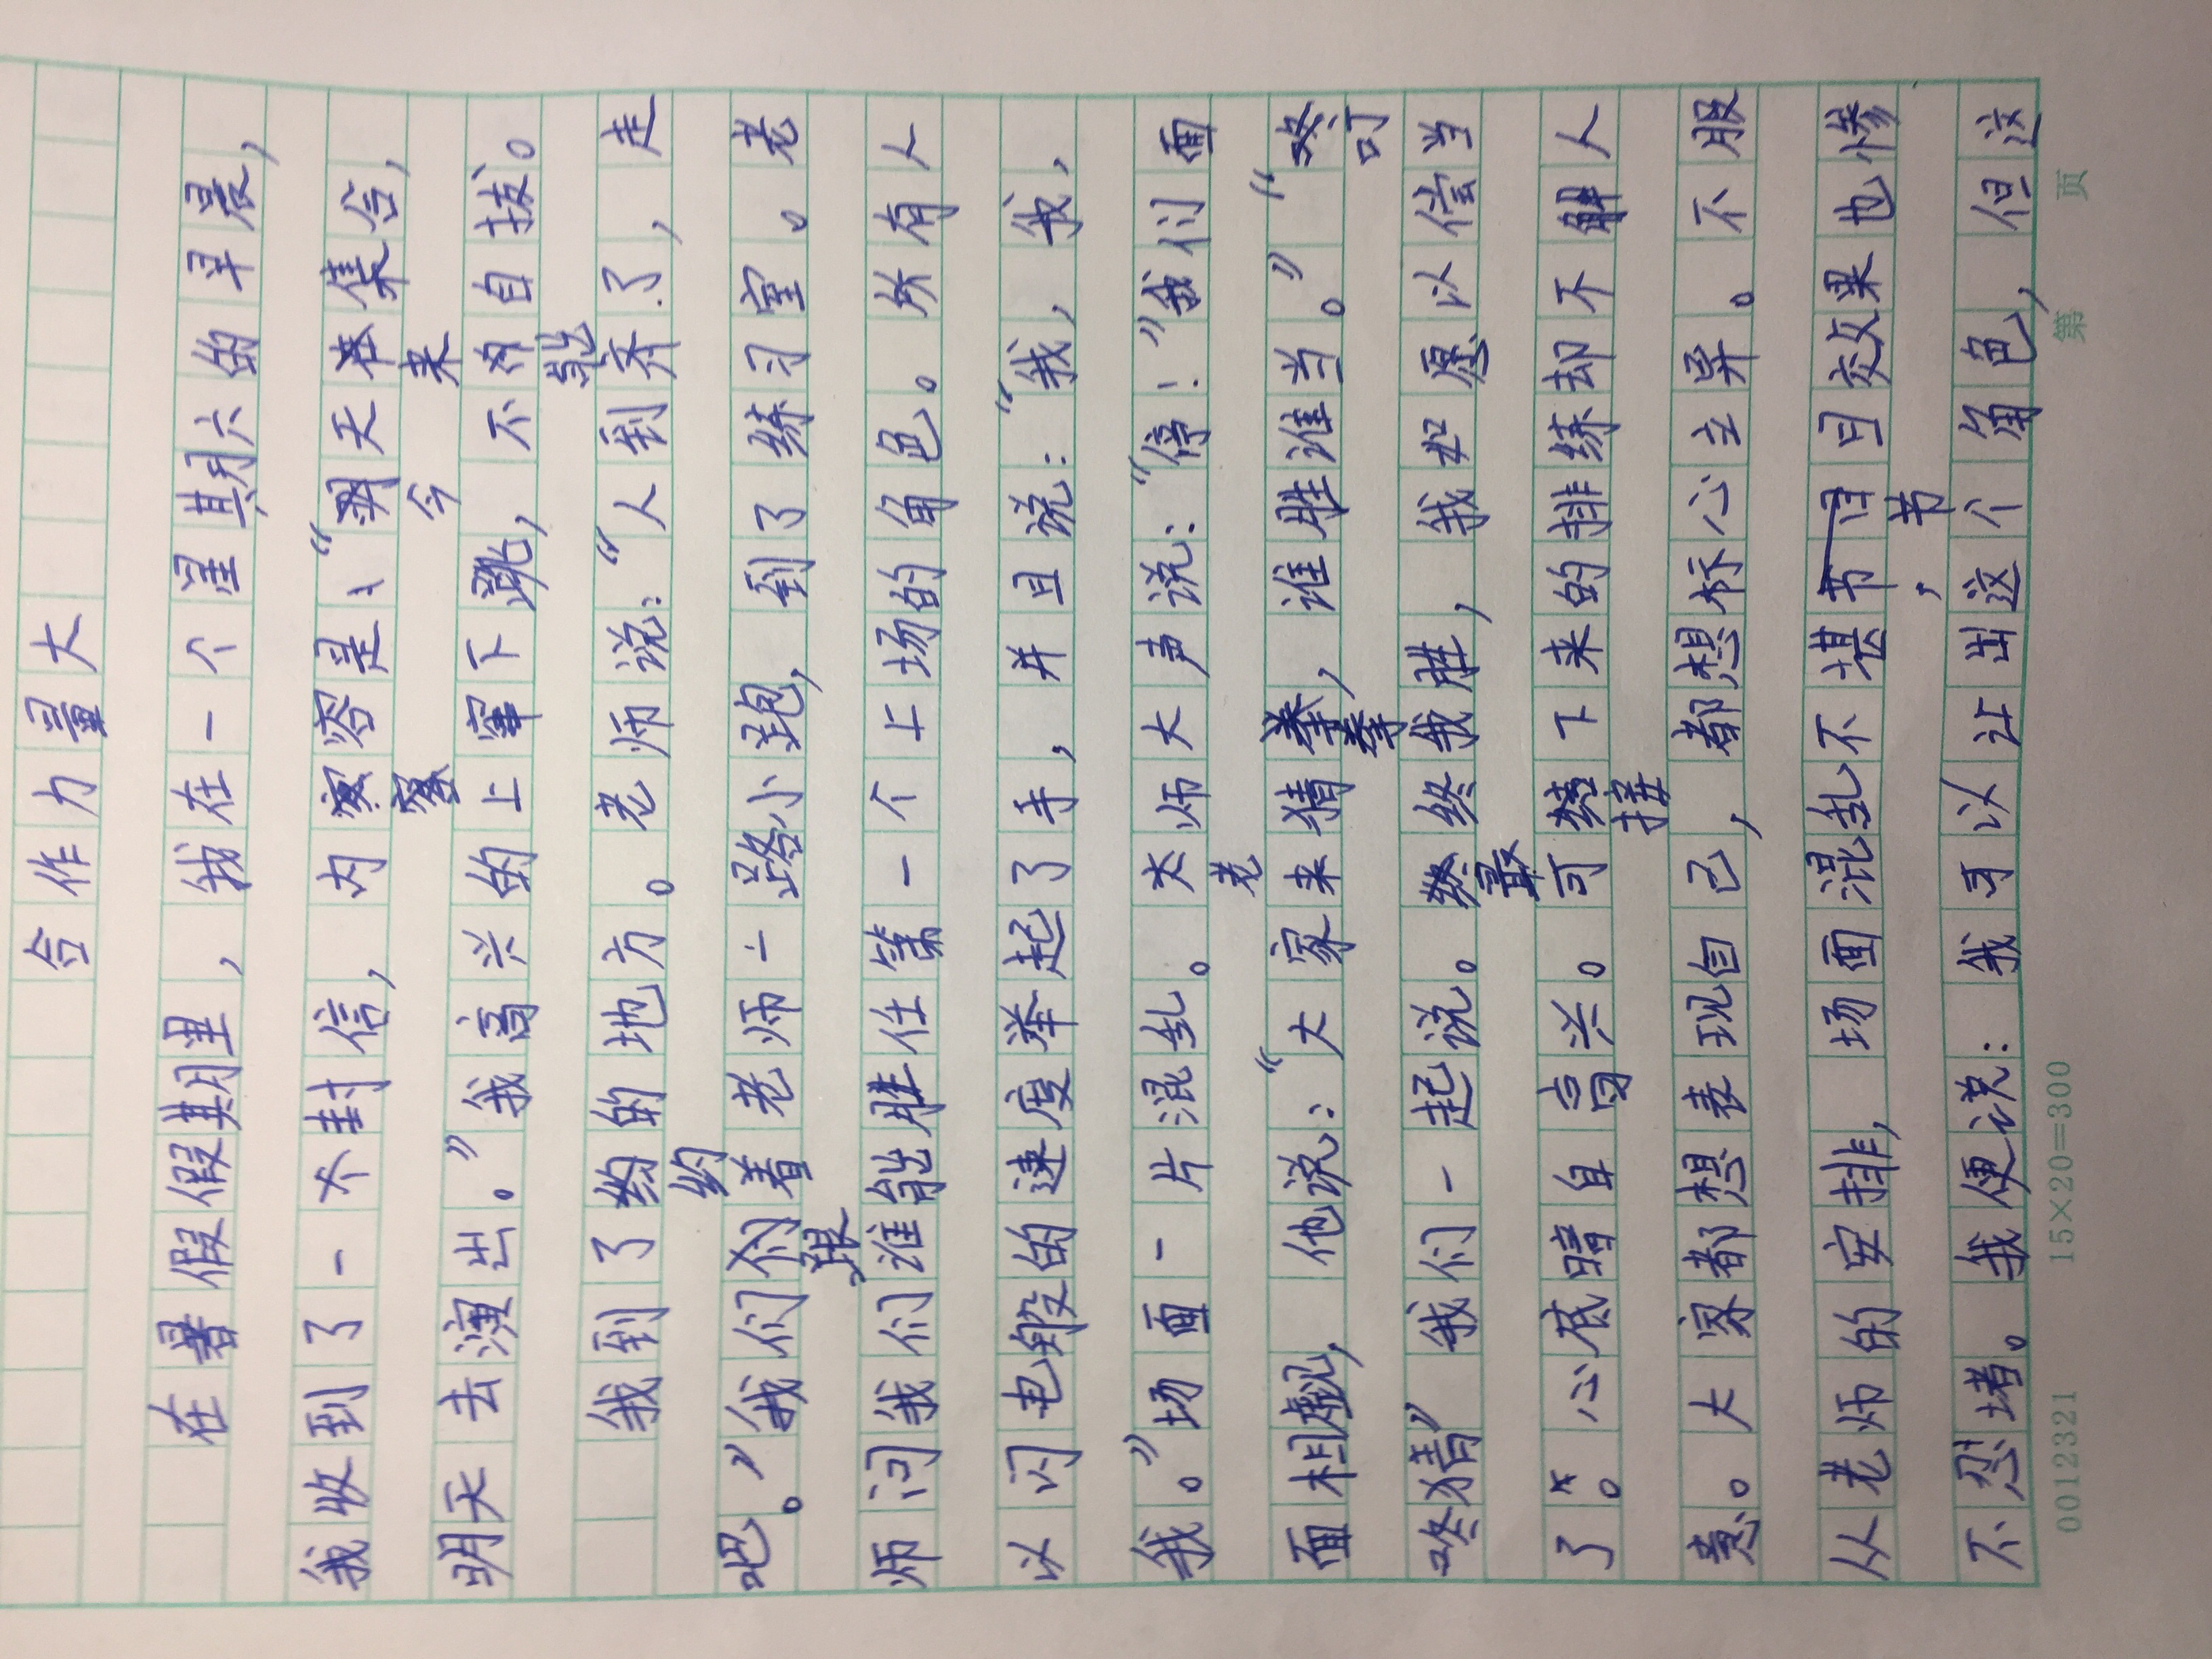 合作力量大
在暑假假期里，我在一个星其月六的早晨，
我收到了一封信，内容是："今天来集合，
明天去演出。"我高兴的上窜下跳，不能自拔。
我到了约的地方。老师说："人到齐了，走
吧。"我们跟着老师一路小跑，到了练习室。老
师问我们谁能胜任第一个上场的角色。所有人
以闪电般的速度举起了手，并且说："我，我，
我。"场面一片混乱。老师大声说："停！"我们面
面相觑，他说："大家来猜拳，谁胜谁当。""咚可
咚猜"我们一起说。最终我胜，我如愿以偿当
了。心底暗自高兴。可接下来的排练却不解人
意。大家都想表现自己，都想标心立异。不服
从老师的安排，场面混乱不堪，节目效果也惨
不忍堵。我便说：我可以让出这个角色，但这
0012321 15×20=300 第 页